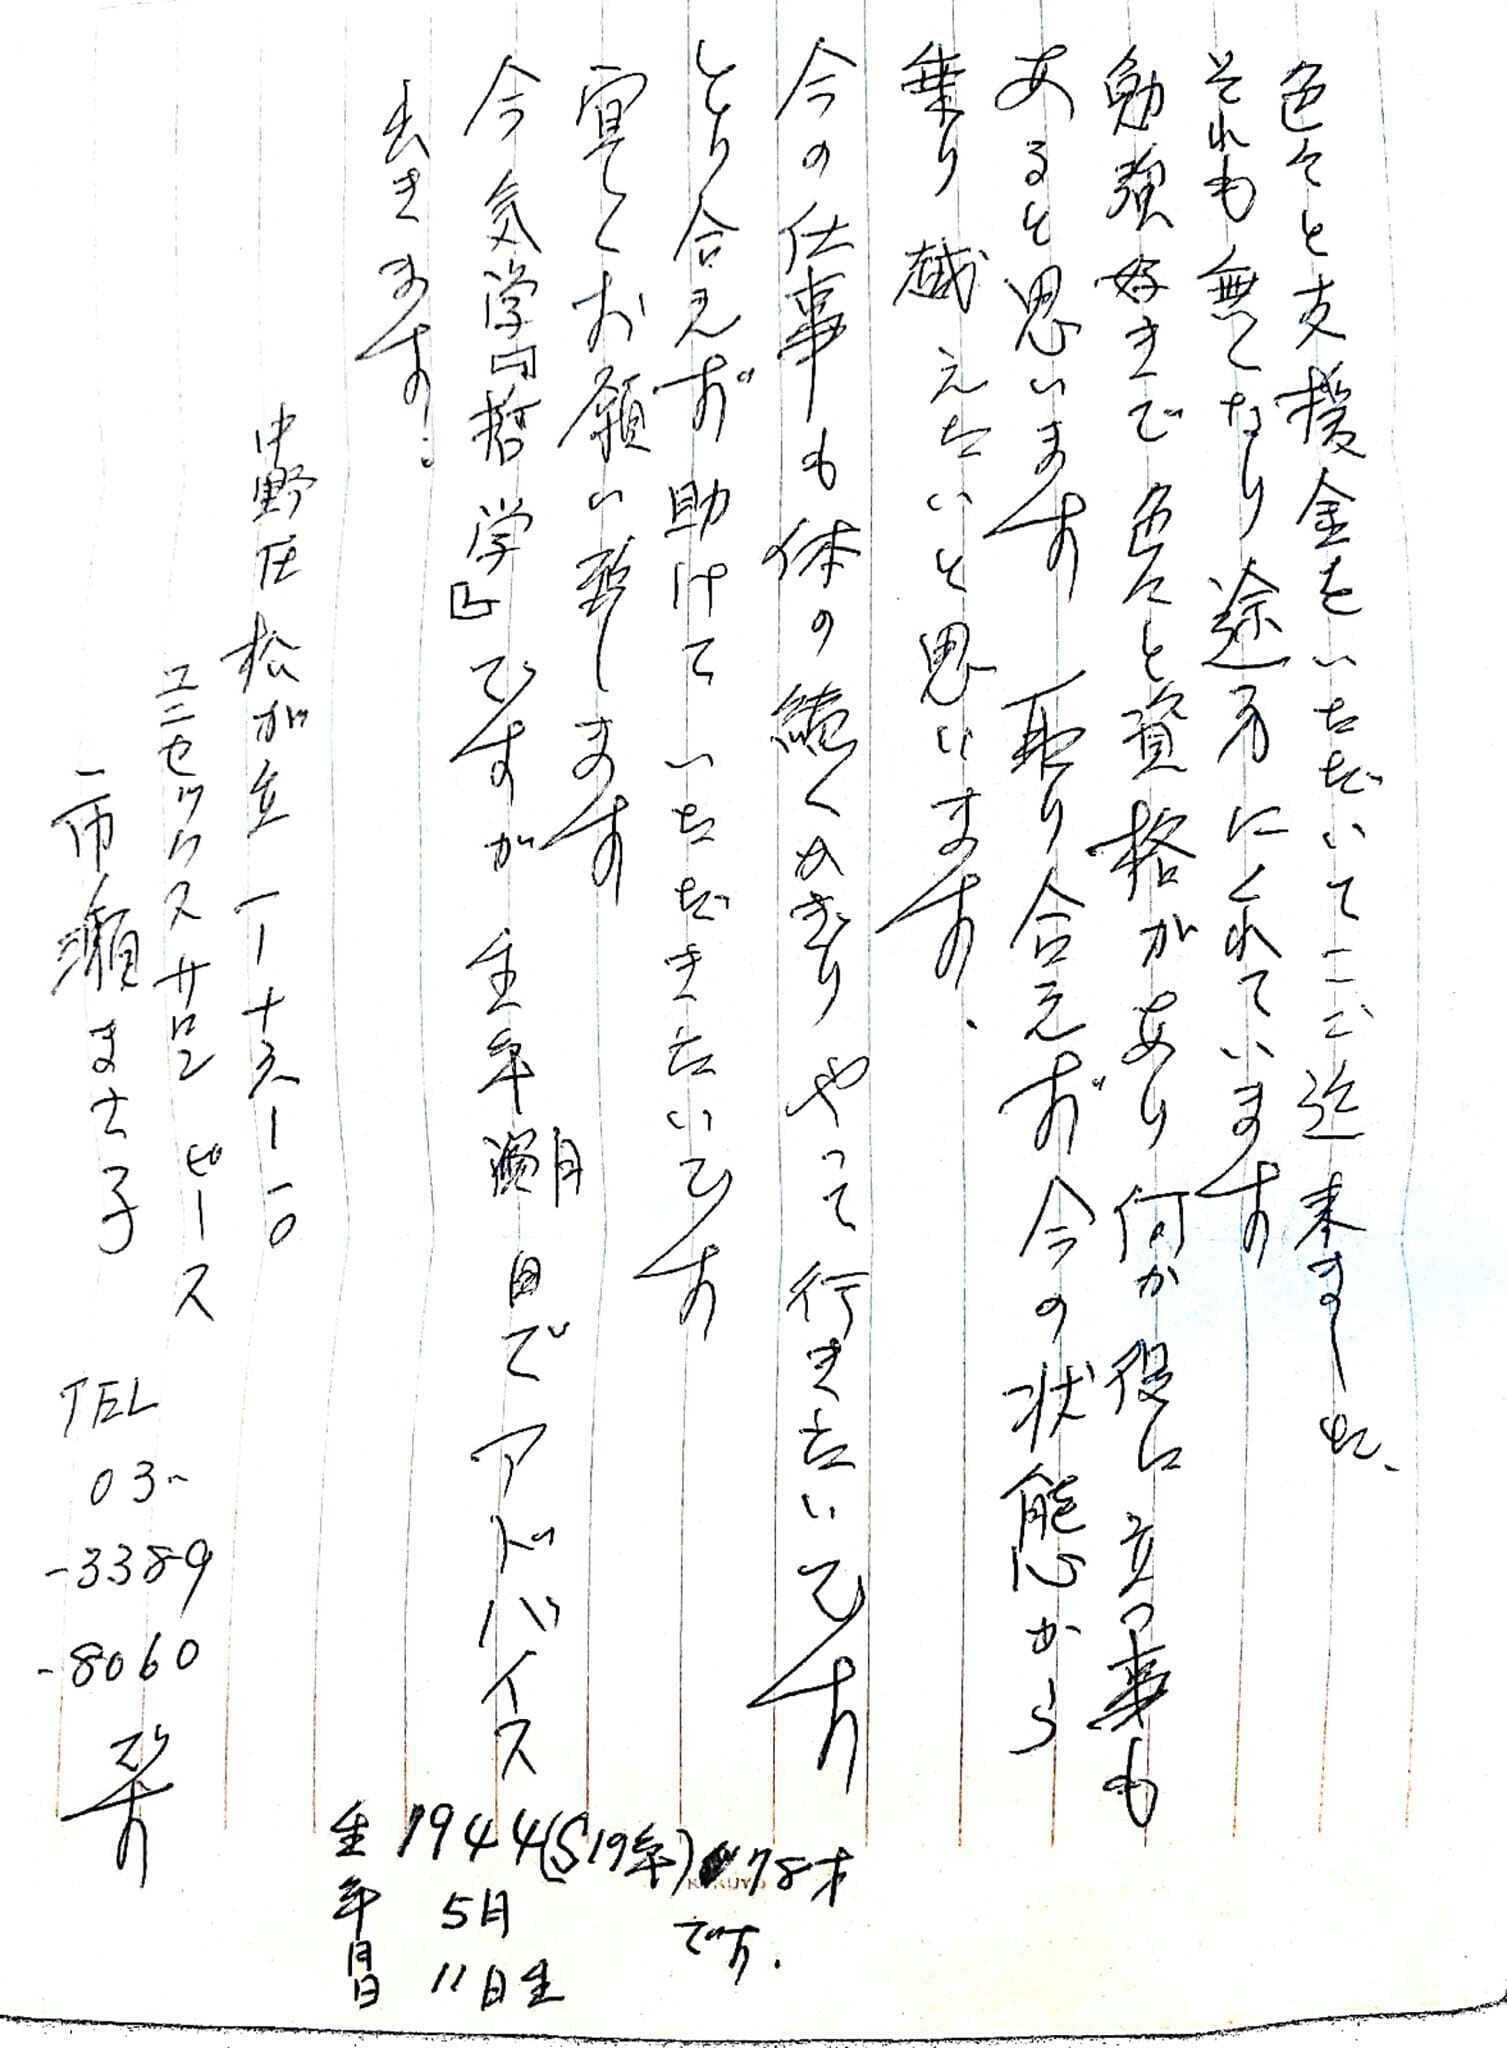 色々と支援金をいただいてここ迄来ました、
それも無くなり途方にくれています
勉強好きで色々と資格があり何か役に立つ事も
あると思います 取り合えず今の状態から
乗り越えたいと思います、
今の仕事も体の続くかぎりやって行きたいです
とり合えず助けていただきたいです
宜しくお願い致します
今気学『哲学』ですが生年月日でアドバイス
出きます。
中野区松が丘一ー十六ー一〇
ユニセックスサロン ピース
一市瀬まち子
TEL
03-
-3389
-8060
です
生年月日
1944(S19年)78才
です.
5月
11日生
KOKUYO